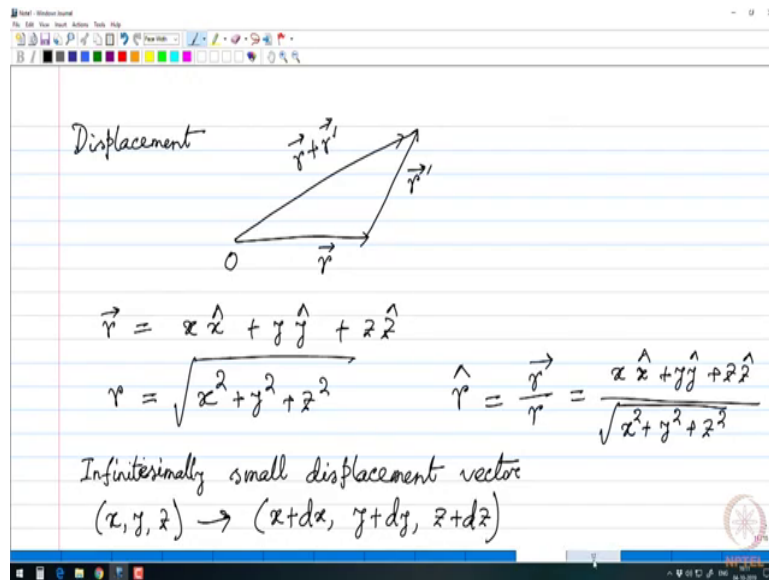 Note1 - Windows Journal
File Edit View Insert Actions Tools Help
B I
Displacement
\vec{r}+\vec{r}'
\vec{r}'
O
\vec{r}
\vec{r} = x\hat{x} + y\hat{y} + z\hat{z}
r = \sqrt{x^2+y^2+z^2}
\hat{r} = \frac{\vec{r}}{r} = \frac{x\hat{x}+y\hat{y}+z\hat{z}}{\sqrt{x^2+y^2+z^2}}
Infinitesimally small displacement vector
(x, y, z) → (x+dx, y+dy, z+dz)
NPTEL
ENG